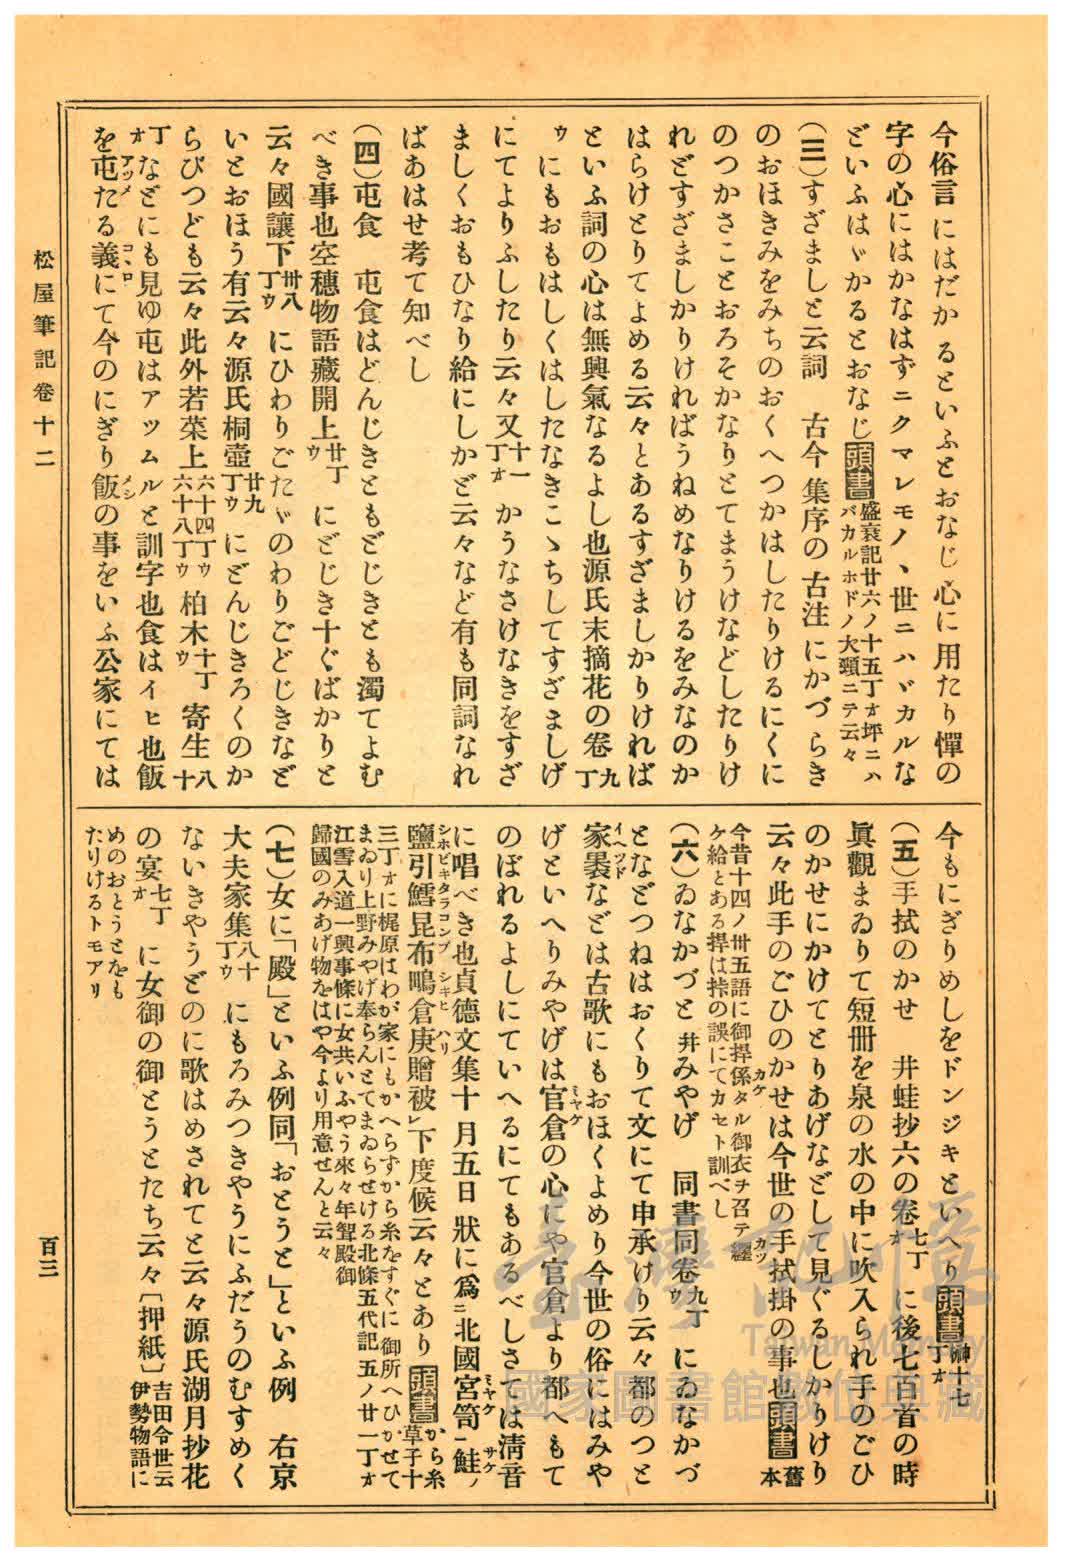 今俗言にはだかるといふとおなじ心に用たり憚の
字の心にはかなはずニクマレモノヽ世ニハヾカルな
どいふはゞかるとおなじ頭書盛衰記廿六ノ十五丁オ坪ニハバカルホドノ大頸ニテ云々
(三)すざましと云詞　古今集序の古注にかづらき
のおほきみをみちのおくへつかはしたりけるにくに
のつかさことおろそかなりとてまうけなどしたりけ
れどすざましかりければうねめなりけるをみなのか
はらけとりてよめる云々とあるすざましかりければ
といふ詞の心は無興氣なるよし也源氏末摘花の卷九丁
ウにもおもはしくはしたなきこゝちしてすざましげ
にてよりふしたり云々又十一丁オかうなさけなきをすざ
ましくおもひなり給にしかど云々など有も同詞なれ
ばあはせ考て知べし
(四)屯食　屯食はどんじきともどじきとも濁てよむ
べき事也空穗物語藏開上廿丁ウにどじき十ぐばかりと
云々國讓下卅八丁ウにひわりごたゞのわりごどじきなど
いとおほう有云々源氏桐壺廿九丁ウにどんじきろくのか
らびつども云々此外若菜上六十四丁ウ六十八丁ウ柏木十丁ウ寄生八十
丁オなどにも見ゆ屯はアツムルと訓字也食はイヒ也飯
を屯アツメたる義コヽロにて今のにぎり飯メシの事をいふ公家にては
今もにぎりめしをドンジキといへり頭書榊十七丁オ
(五)手拭のかせ　井蛙抄六の卷七丁オに後七百首の時
眞觀まゐりて短冊を泉の水の中に吹入られ手のごひ
のかせにかけてとりあげなどして見ぐるしかりけり
云々此手のごひのかせは今世の手拭掛の事也頭書舊本
今昔十四ノ卅五語に御捍係カケタル御衣ヲ召テ纏カツ
ケ給とある捍は桛の誤にてカセト訓べし
(六)ゐなかづと　幷みやげ　同書同卷九丁ウにゐなかづ
となどつねはおくりて文にて申承けり云々都のつと
家褁イヘツドなどは古歌にもおほくよめり今世の俗にはみや
げといへりみやげは官倉ミヤケの心にや官倉より都へもて
のぼれるよしにていへるにてもあるべしさては淸音
に唱べき也貞德文集十月五日狀に爲ニ北國宮笥ミヤケ一鮭サケノ
鹽引シホビキ鱈タラ昆布コンブ鴫シギ倉庚ヒハリ贈被レ下度候云々とあり頭書から糸草子十
三丁オに梶原はわが家にもかへらすから糸をすぐに御所へひかせて
まゐり上野みやげ奉らんとてまゐらせける北條五代記五ノ廿一丁オ
江雪入道一興事條に女共いふやう來々年聟殿御
歸國のみあげ物をはや今より用意せんと云々
(七)女に「殿」といふ例同「おとうと」といふ例　右京
大夫家集八十丁ウにもろみつきやうにふだうのむすめく
ないきやうどのに歌はめされてと云々源氏湖月抄花
の宴七丁オに女御の御とうとたち云々〔押紙〕吉田令世云伊勢物語に
めのおとうとをも
たりけるトモアリ
松屋筆記卷十二
百三
臺灣記憶
Taiwan Memory
國家圖書館數位典藏